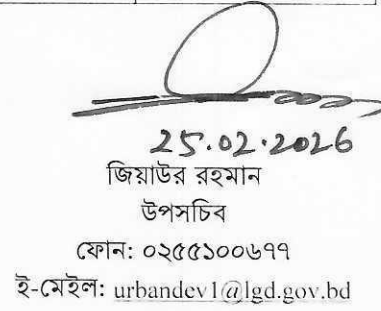 25.02.2026
জিয়াউর রহমান
উপসচিব
ফোন: ০২৫৫১০০৬৭৭
ই-মেইল: urbandev1@lgd.gov.bd